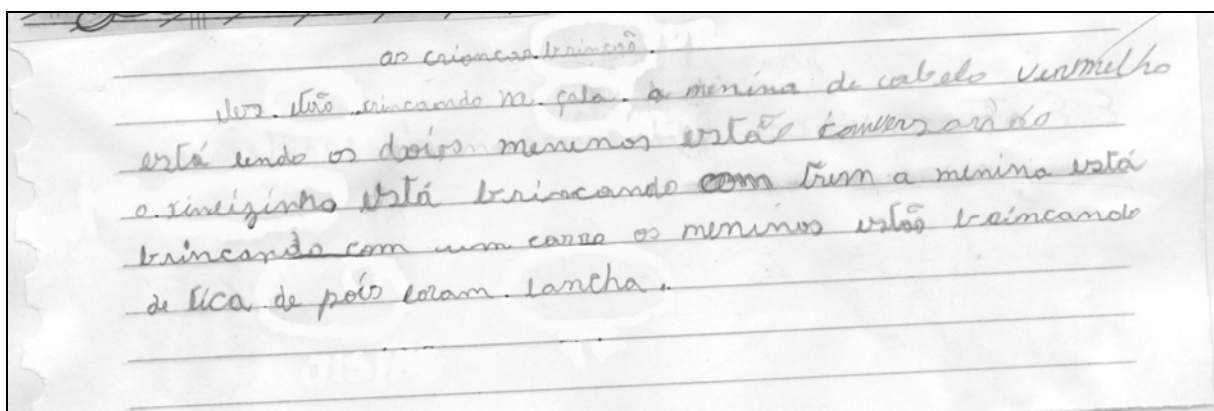 as criancas brincão.
eles estão crincando na sala. a menina de cabelo vermelho
está lendo os doiss meninos estão conversando
o xineizinho está brincando com trem a menina está
brincando com um carro os meninos estão brincando
de lica de pois foram lancha.